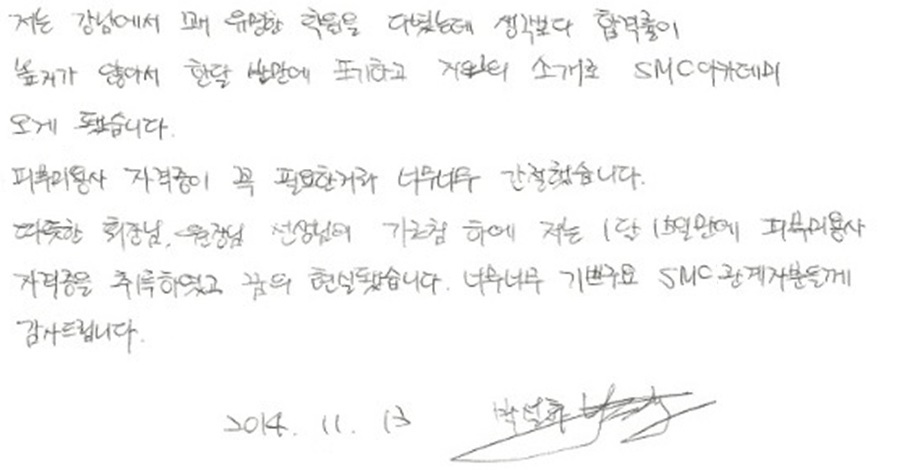 저는 강남에서 꽤 유명한 학원을 다녔는데 생각보다 합격률이
높지가 않아서 한달 반만에 포기하고 지인의 소개로 SMC아카데미
오게 됐습니다.
피부미용사 자격증이 꼭 필요한거라 너무너무 간절했습니다.
따뜻한 회장님, 원장님 선생님의 가르침 하에 저는 1달 15일만에 피부미용사
자격증을 취득하였고 꿈의 현실됐습니다. 너무너무 기쁘구요 SMC관계자분들께
감사드립니다.
2014. 11. 13